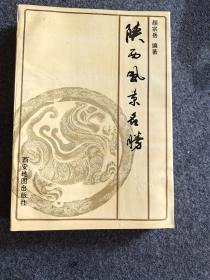 颜宗岳 编著
陕西风景名胜
西安地图出版社